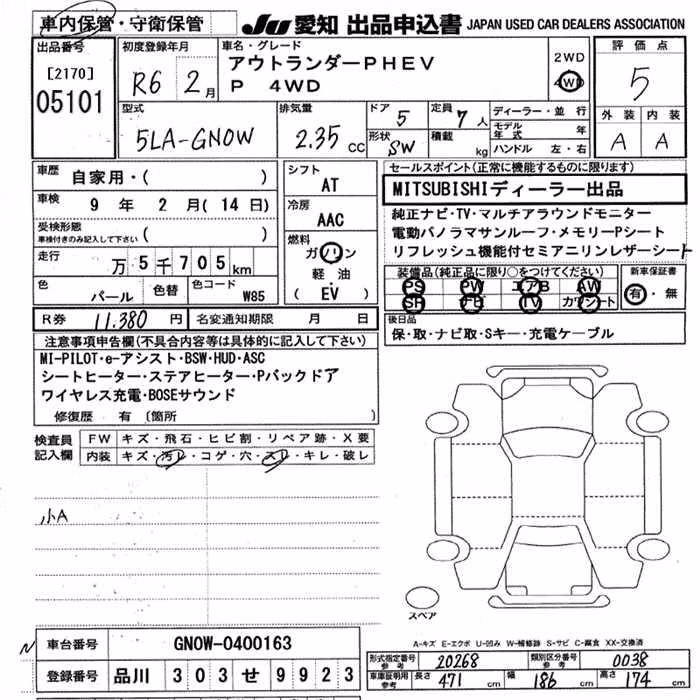 車内保管・守衛保管
JU 愛知 出品申込書 JAPAN USED CAR DEALERS ASSOCIATION
出品番号
[2170]
05101
初度登録年月
R6 2月
車名・グレード
アウトランダーPHEV
P 4WD
2WD
4WD
評価点
5
外装 内装
A A
型式
5LA-GN0W
排気量
2.35 CC
ドア 5
形状 SW
定員 7 人
積載 kg
ディーラー・並行
モデル年式 年
ハンドル 左・右
車歴 自家用・( )
車検 9 年 2 月(14日)
受検形態
車検付きのみ記入して下さい ( )
走行 万 5千705km
色 パール 色替 色コード W85
R券 11,380 円 名変通知期限 月 日
シフト
AT
冷房
AAC
燃料
ガソリン
軽油
(EV)
セールスポイント(正常に機能するものに限ります)
MITSUBISHIディーラー出品
純正ナビ・TV・マルチアラウンドモニター
電動パノラマサンルーフ・メモリーPシート
リフレッシュ機能付セミアニリンレザーシート
装備品(純正品に限り○をつけてください)
PS PW エアB AW
SR ナビ TV カワシート
新車保証書
有・無
後日品
保・取・ナビ取・Sキー・充電ケーブル
注意事項申告欄(不具合内容等は具体的に記入して下さい)
MI-PILOT・e-アシスト・BSW・HUD・ASC
シートヒーター・ステアヒーター・Pバックドア
ワイヤレス充電・BOSEサウンド
修復歴 有 〔箇所 〕
検査員記入欄
FW キズ・飛石・ヒビ割・リペア跡・X要
内装 キズ・汚レ・コゲ・穴・スレ・キレ・破レ
小A
スペア
A-キズ E-エクボ U-凹み W-補修跡 S-サビ C-腐食 XX-交換済
車台番号 GN0W-0400163
登録番号 品川 303 せ 9923
形式指定番号 参考 20268 類別区分番号 参考 0038
車庫証明用 参考 長さ 471 cm 幅 186 cm 高さ 174 cm